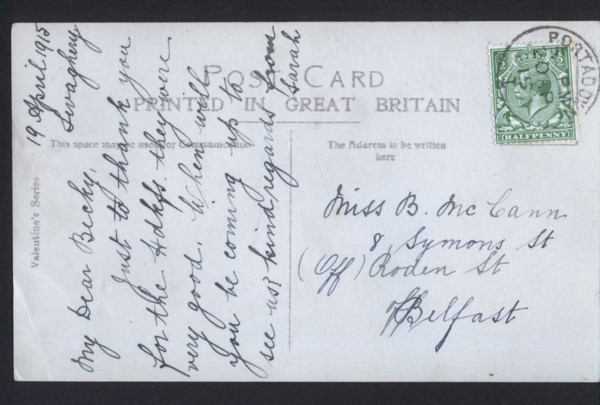 19 April 1915
Swaghery
My Dear Becky,
Just to thank you
for the Hdkfs they were
very good. When will
you be coming up to
see us, kind regards from
Sarah
POST CARD
PRINTED IN GREAT BRITAIN
This space may be used for Communication
The Address to be written
here
Valentine's Series
HALFPENNY
PORTADOWN
Miss B. McCann
8, Symons St
(Off) Roden St
Belfast